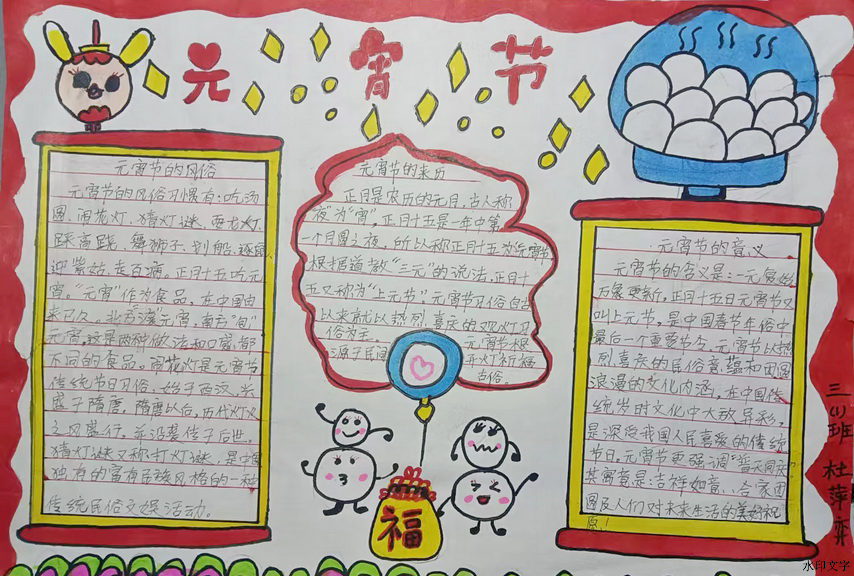 元宵节
元宵节的风俗
元宵节的风俗习惯有:吃汤
圆,闹花灯,猜灯谜,耍龙灯,
踩高跷,舞狮子,划船,逐鼠,
迎紫姑,走百病。正月十五吃元
宵。“元宵”作为食品,在中国由
来已久。北方“滚”元宵,南方“包”
元宵,这是两种做法和口感都
不同的食品。赏花灯是元宵节
传统节日习俗,始于西汉,兴
盛于隋唐,隋唐以后,历代灯火
之风盛行,并沿袭传于后世。
猜灯谜又称打灯谜,是中国
独有的富有民族风格的一种
传统民俗文娱活动。
元宵节的来历
正月是农历的元月,古人称
“夜”为“宵”,正月十五是一年中第
一个月圆之夜,所以称正月十五为元宵节
根据道教“三元”的说法,正月十
五又称为“上元节”。元宵节习俗自古
以来就以热烈喜庆的观灯习
俗为主。元宵节根
源于民间开灯祈福
古俗。
福
元宵节的意义
元宵节的含义是:一元复始,
万象更新,正月十五日元宵节又
叫上元节,是中国春节年俗中
最后一个重要节令,元宵节以热
烈喜庆的民俗意蕴和团圆
浪漫的文化内涵,在中国传
统岁时文化中大放异彩,
是深受我国人民喜爱的传统
节日。元宵节更强调“普天同庆”
其寓意是:吉祥如意、合家团
圆及人们对未来生活的美好祝
愿!
三(1)班 杜萍
水印文字